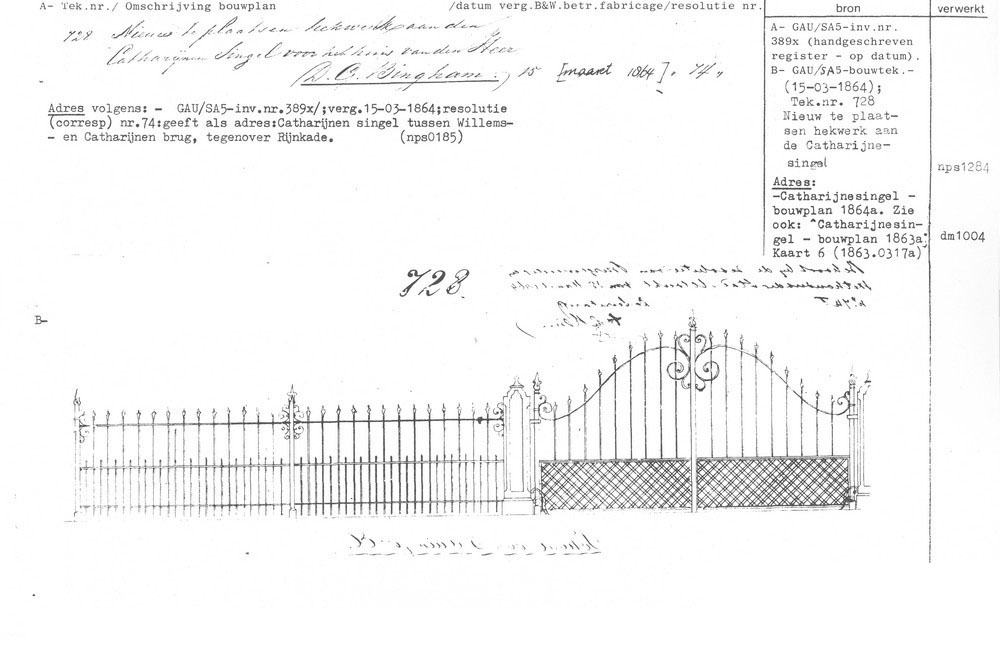 A- Tek.nr./ Omschrijving bouwplan /datum verg.B&W.betr.fabricage/resolutie nr.
728 Nieuw te plaatsen hekwerk aan den
Catharijnen Singel voor het huis van den Heer
(D. C. Bingham.) 15 [maart 1864] „ 74 „
Adres volgens: - GAU/SA5-inv.nr.389x/;verg.15-03-1864;resolutie
(corresp) nr.74:geeft als adres:Catharijnen singel tussen Willems-
- en Catharijnen brug, tegenover Rijnkade. (nps0185)
bron
A- GAU/SA5-inv.nr.
389x (handgeschreven
register - op datum).
B- GAU/SA5-bouwtek.-
(15-03-1864);
Tek.nr. 728
Nieuw te plaat-
sen hekwerk aan
de Catharijne-
singel
Adres:
-Catharijnesingel -
bouwplan 1864a. Zie
ook: ^Catharijnesin-
gel - bouwplan 1863a;
Kaart 6 (1863.0317a)
verwerkt
nps1284
dm1004
728.
B-